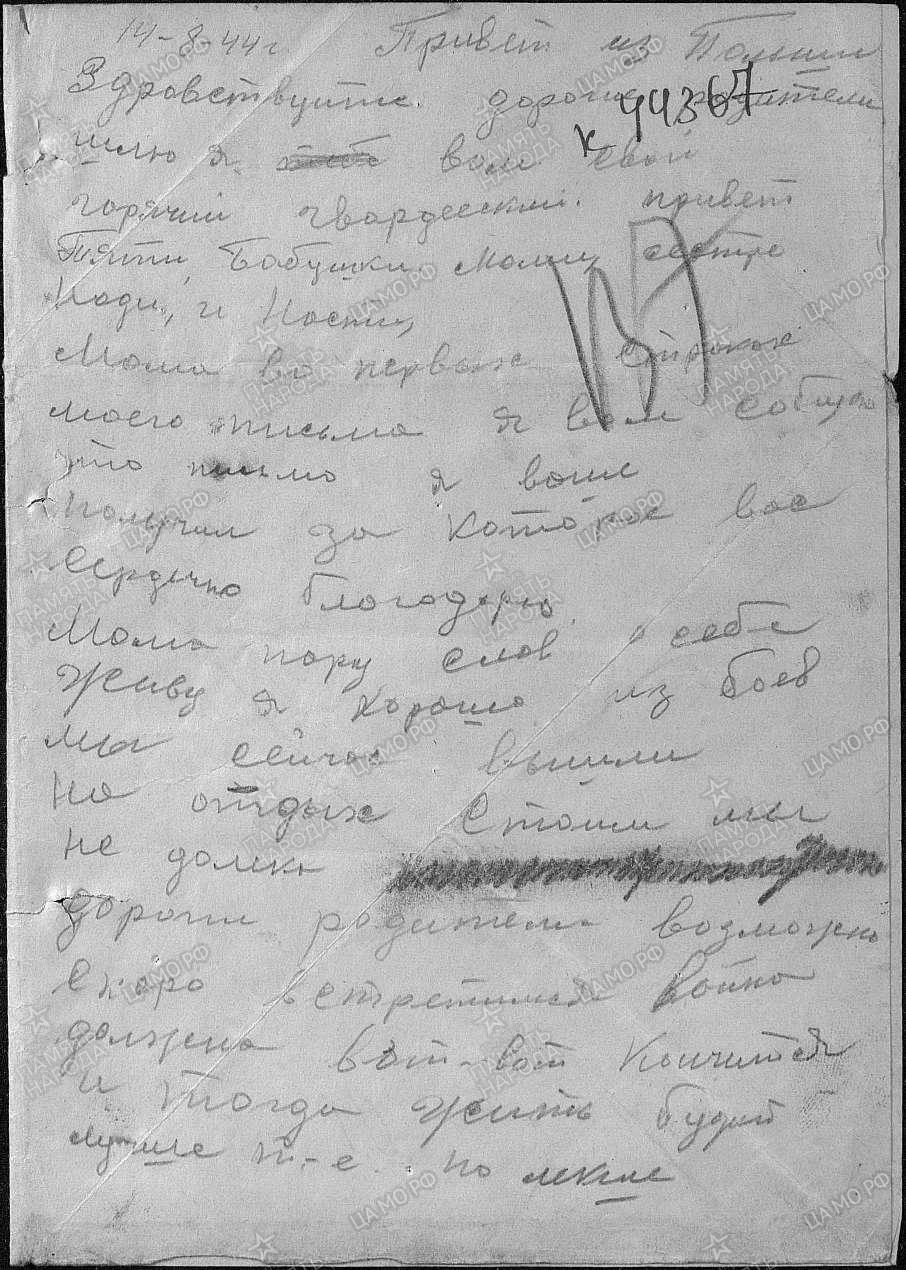 14-8-44г Привет из Польши
Здравствуйте. дорогие родители
к 44367
шлю я вам свой
горячий гвардееский. привет
Пяти, Бабушки, Мами, сестре
Нади, и Насти,
Мама во первых строках
моего письма я вам собщаю
это письмо я ваше
получил за которое вас
Сердечно благодарю
Мама пару слов о себе
Живу я хорошо из боев
мы сейчас вышли
на отдых Стоим мы
не далеко
дороги родители возможно
скоро встретимся война
должна вот-вот кончится
и тогда жить будит
лучше т-е по лекше
ПАМЯТЬ НАРОДА
ЦАМО.РФ